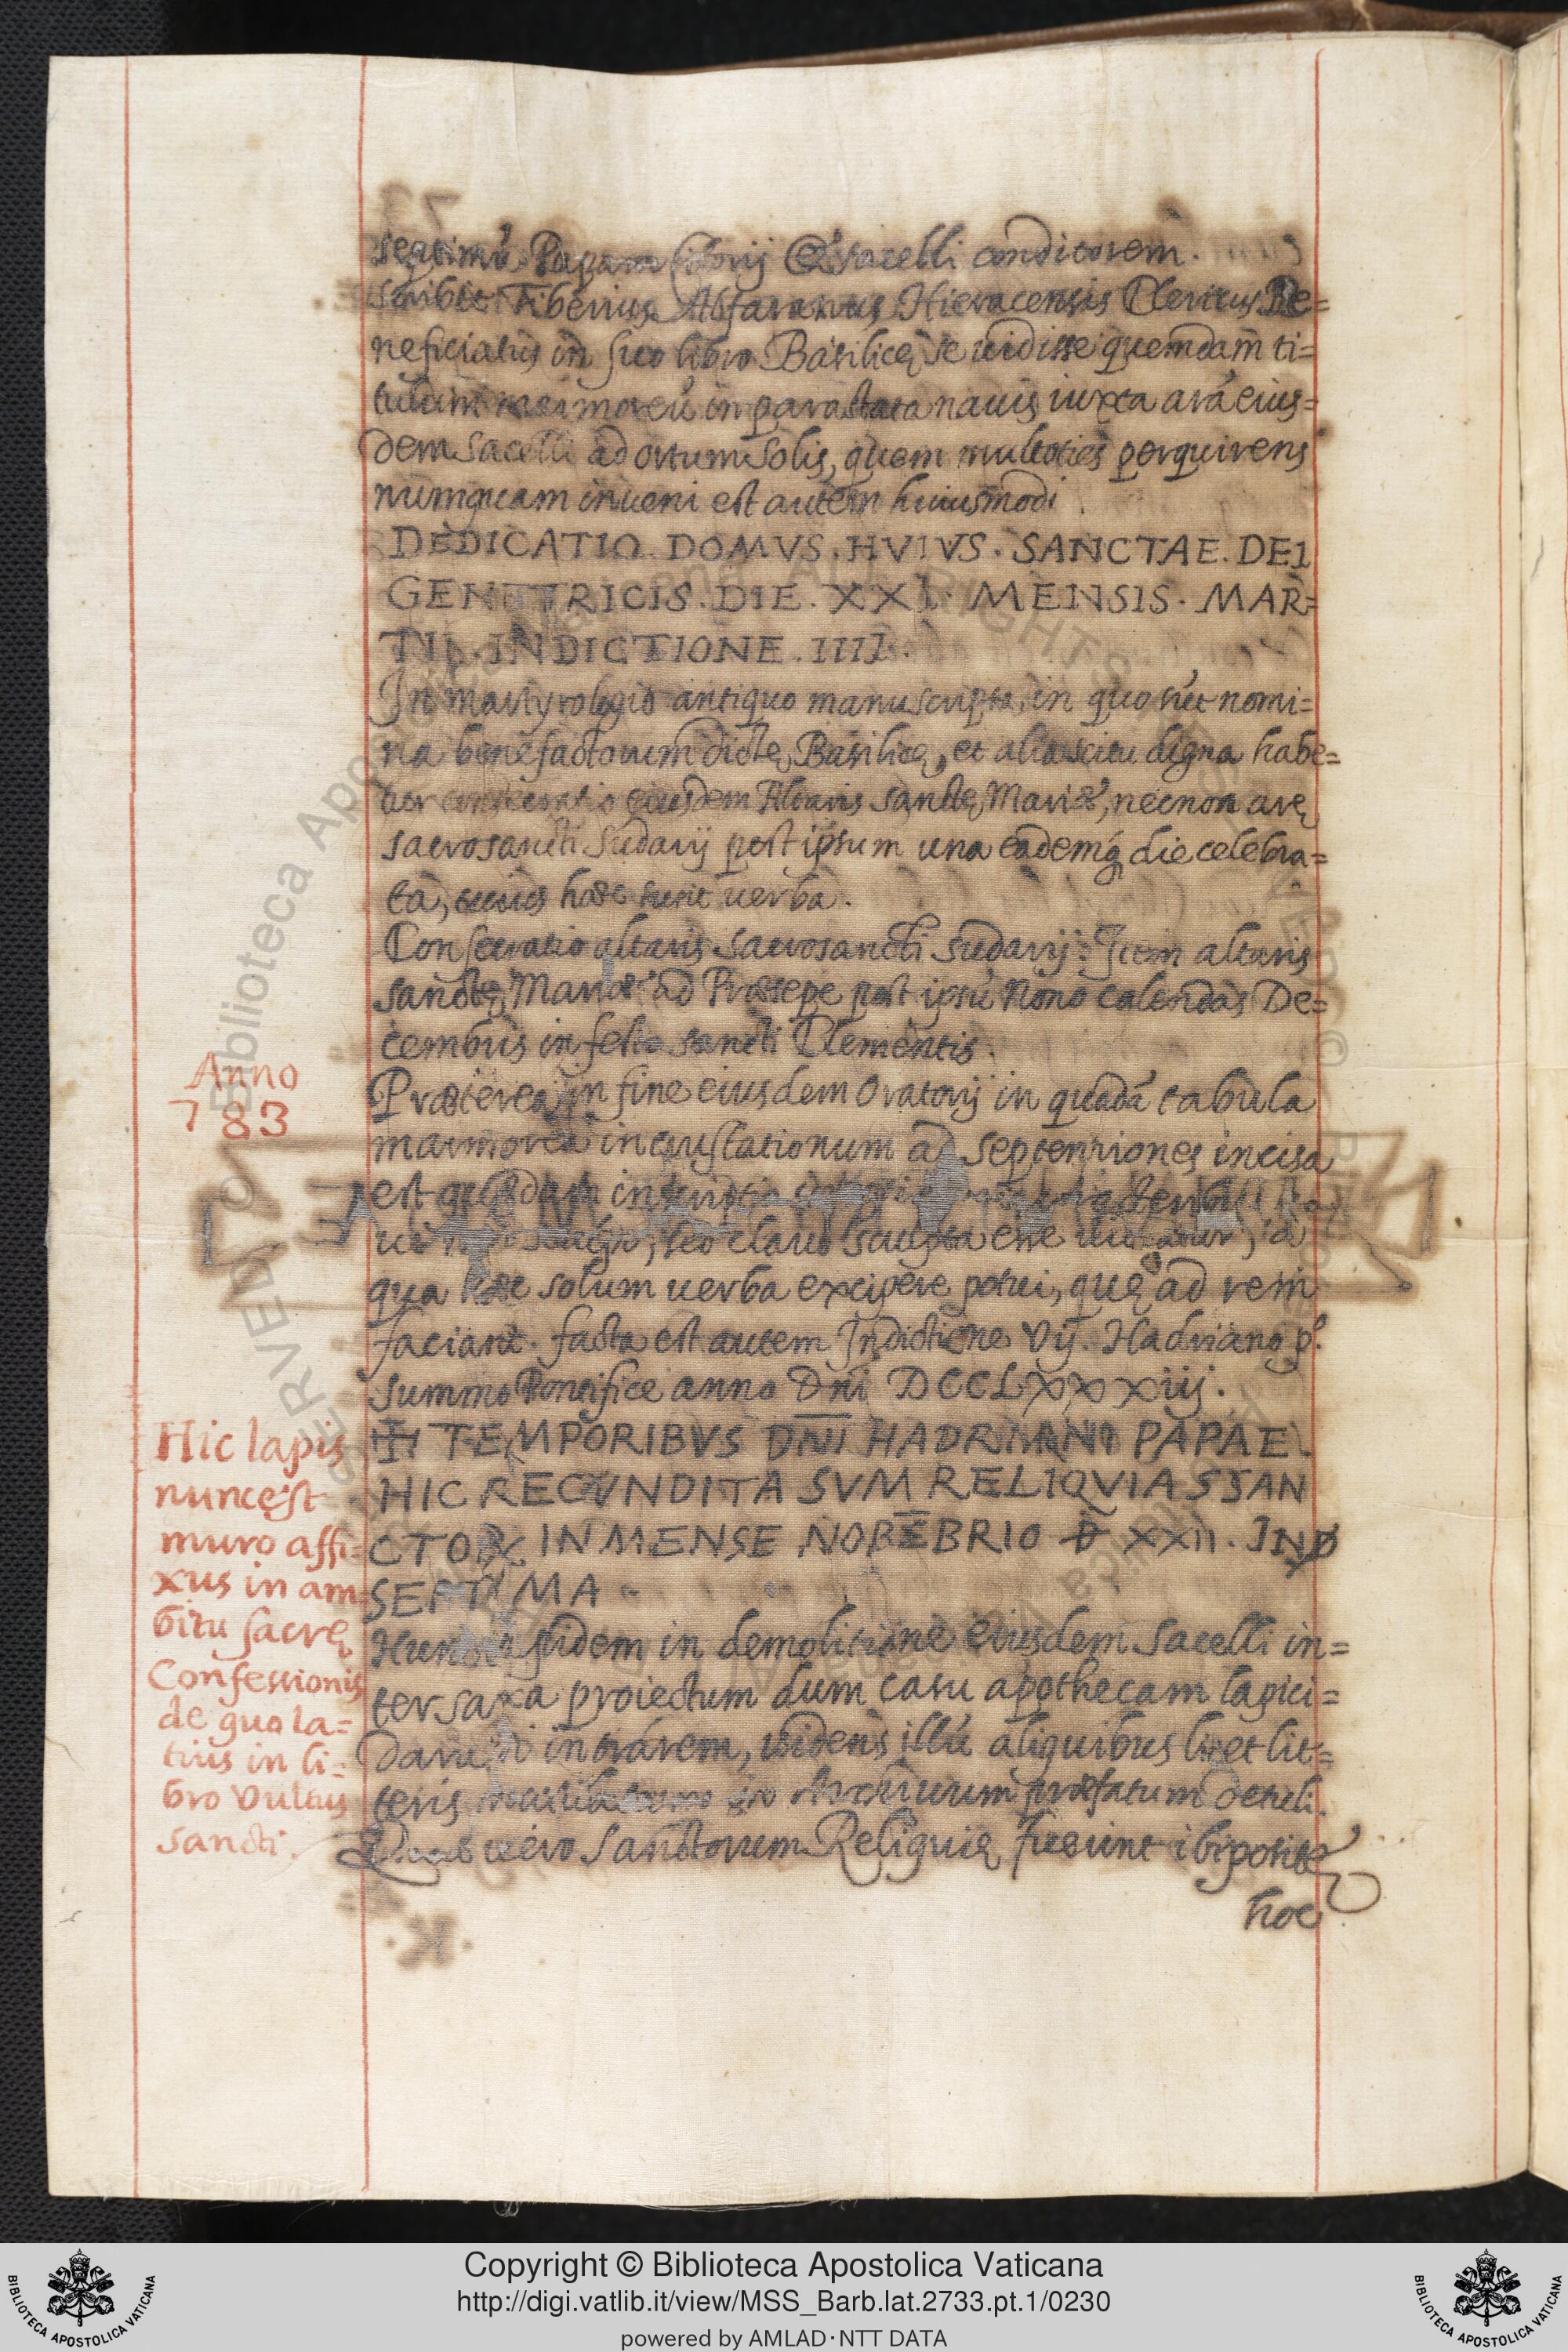 septimũ Papam Oratorij & sacelli conditorem.
scribit Tiberius Alfaranus Hieracensis Clericus Be=
neficiatus in suo libro Basilicę se uidisse quemdam ti=
tulum marmoreũ in parastata nauis iuxta arã eius=
dem sacelli ad ortum solis, quem multoties perquirens
numquam inueni est autem huiusmodi
DEDICATIO. DOMVS. HVIVS. SANCTAE. DEI
GENITRICIS. DIE. XXI. MENSIS. MAR=
TII. INDICTIONE. IIII.
In martyrologio antiquo manuscripto, in quo sũt nomi=
na benefactorum dictę Basilicę, et alia scitu digna habe=
tur consecratio eiusdem Altaris sanctę Mariæ, necnon arę
sacrosancti Sudarij post ipsum una eademq́ die celebra=
ta, cuius hæc sunt uerba.
Consecratio altaris sacrosancti Sudarij. Item altaris
sanctę Mariæ ad Præsepe post ipsũ Nono calendas De=
cembris in festo sancti Clementis.
Anno
783
Præterea in fine eiusdem Oratorij in quadã tabula
marmorea incrustationum ad septentriones incisa
est quædam inscriptio
seo clauo sculpta esse uideatur, a
qua hæc solum uerba excipere potui, quę ad rem
faciant. facta est autem Indictione Vij. Hadriano p.º
summo Pontifice anno Dñi DCCLXXXiij.
Hic lapis
nunc est
muro affi=
xus in am=
bitu sacrę
Confessionis
de quo la=
tius in li=
bro Vultus
sancti.
✠ TEMPORIBVS DNI HADRIANI PAPAE
HIC RECVNDITA SVM RELIQVIAS SAN
CTOR IN MENSE NOBEBRIO D XXII. IND
SEPTIMA
Hunc lapidem in demolitione eiusdem Sacelli in=
ter saxa proiectum dum casu apothecam lapici=
darum intrarem, uidens illũ aliquibus licet lit=
teris Archiuum præfatum detuli.
Quæ uero Sanctorum Reliquię fuerint ibi positæ
hoc
Copyright © Biblioteca Apostolica Vaticana
http://digi.vatlib.it/view/MSS_Barb.lat.2733.pt.1/0230
powered by AMLAD·NTT DATA
BIBLIOTECA APOSTOLICA VATICANA
BIBLIOTECA APOSTOLICA VATICANA